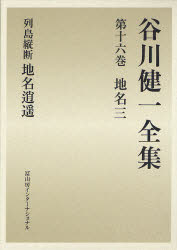 谷川健一全集
第十六巻 地名三
列島縦断 地名逍遥
冨山房インターナショナル